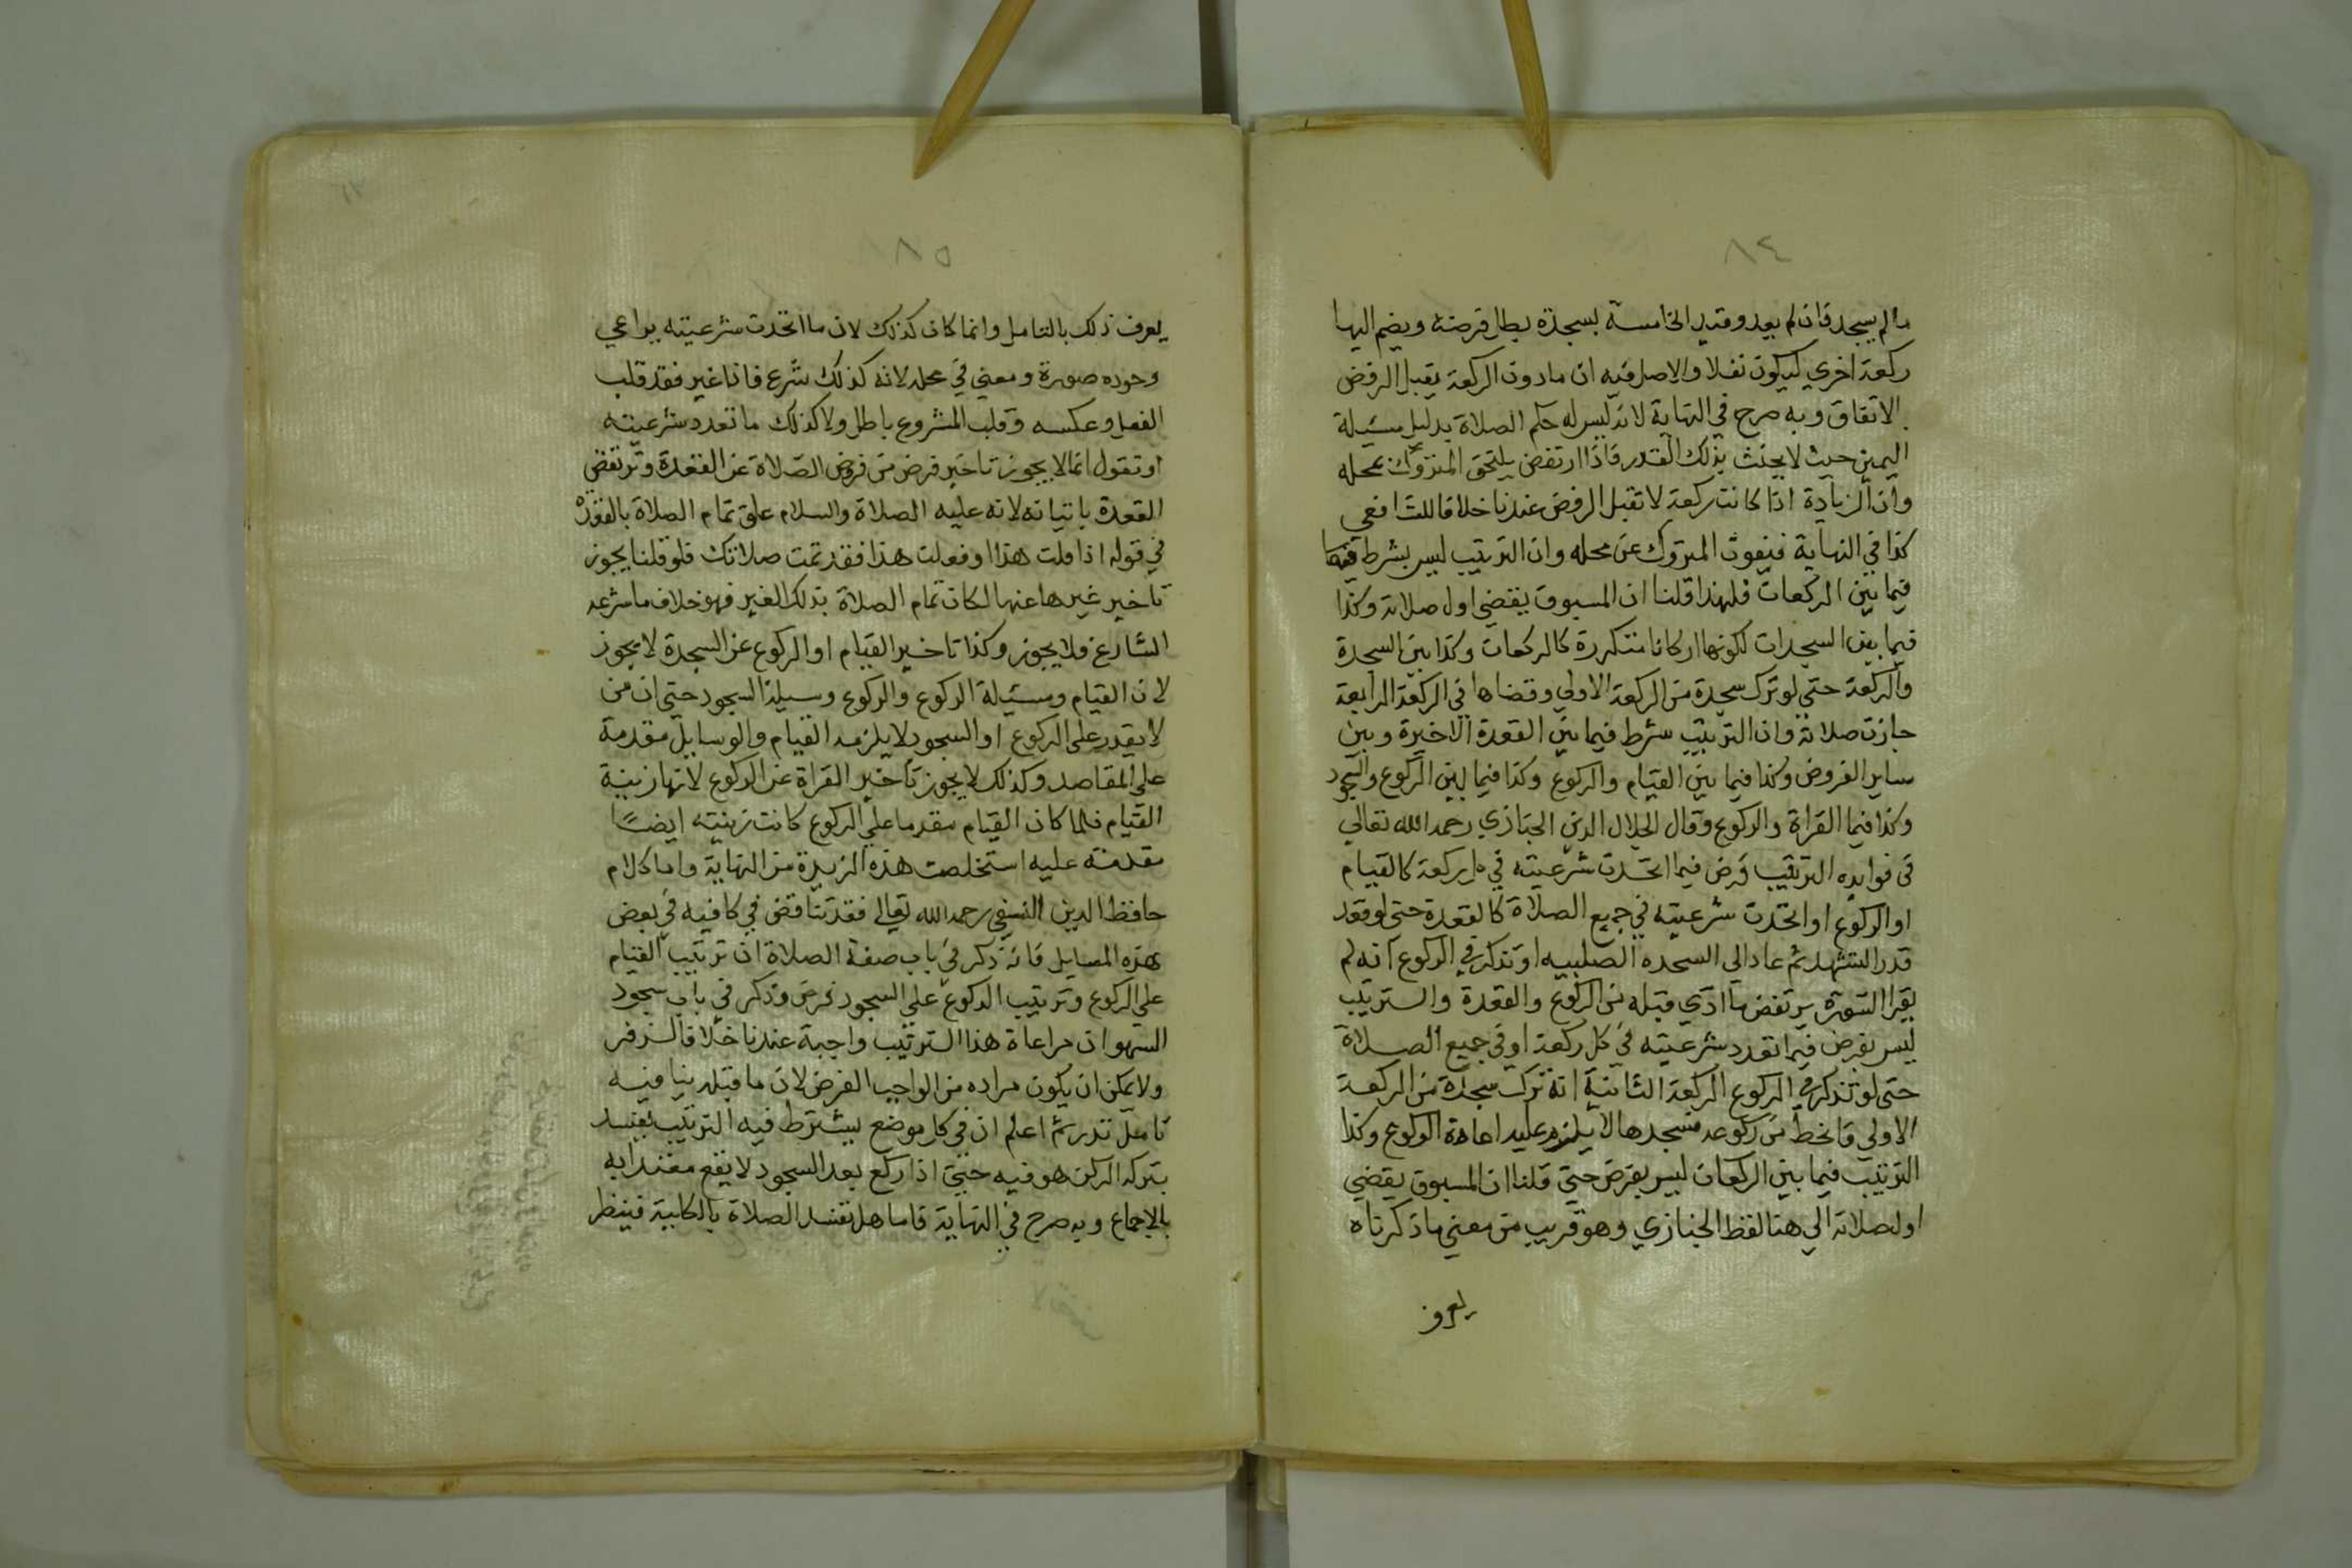 ٨٤
مالم يسجد فان لم يعد وقيد الخامسة بسجدة بطل فرضه ويضم اليها
ركعة اخري ليكون نفلا والاصل فيه ان مادون الركعة يقبل الرفض
بالاتفاق وبه صرح في النهاية لانه ليس له حكم الصلاة بدليل مسئلة
اليمين حيث لا يحنث بذلك القدر فاذا ارتفض يلتحق المتروك بمحله
وان الزيادة اذا كانت ركعة لا تقبل الرفض عندنا خلافا للشافعي
كذا في النهاية فيفوت المتروك عن محله وان الترتيب ليس بشرط
فيما بين الركعات فلهذا قلنا ان المسبوق يقضي اول صلاته وكذا
فيما بين السجدات لكونها اركانا متكررة كالركعات وكذا بين السجدة
والركعة حتي لو ترك سجدة من الركعة الاولي وقضاها في الركعة الرابعة
جازت صلاته وان الترتيب شرط فيما بين القعدة الاخيرة وبين
ساير الفروض وكذا فيما بين القيام والركوع وكذا فيما بين الركوع والسجود
وكذا فيما القراة والركوع وقال الجلال الدين الخبازي رحمه الله تعالي
في فوايده الترتيب فرض فيما اتحدت شرعيته في كل ركعة كالقيام
او الركوع او اتحدت شرعيته في جميع الصلاة كالقعدة حتي لو قعد
قدر التشهد ثم عاد الي السجدة الصلبيه او تذكر في الركوع انه لم
يقرا السورة يرتفض ما ادي قبله من الركوع والقعدة والترتيب
ليس بفرض فيما تعدد شرعيته في كل ركعة او في جميع الصلاة
حتي لو تذكر في الركوع الركعة الثانية انه ترك سجدة من الركعة
الاولي فانحط من ركوعه فسجدها لا يلزم عليه اعادة الركوع وكذا
الترتيب فيما بين الركعات ليس بفرض حتي قلنا ان المسبوق يقضي
اول صلاته الي هنا لفظ الخبازي وهو قريب من معني ما ذكرناه
يعرف
٨٥
يعرف ذلك بالتامل وانما كان كذلك لان ما اتحدت شرعيته يراعي
وجوده صورة ومعني في محله لانه كذلك شرع فاذا غير فقد قلب
الفعل وعكسه وقلب المشروع باطل ولا كذلك ما تعدد شرعيته
او تقول انما لا يجوز تاخير فرض من فروض الصلاة عن القعدة وترتفض
القعدة باتيانه لانه عليه الصلاة والسلام علق تمام الصلاة بالقعدة
في قوله اذا قلت هذا او فعلت هذا فقد تمت صلاتك فلو قلنا يجوز
تاخير غيرها عنها لكان تمام الصلاة بذلك الغير فهو خلاف ما شرعه
الشارع فلا يجوز وكذا تاخير القيام او الركوع عن السجدة لا يجوز
لان القيام وسيلة الركوع والركوع وسيلة السجود حتي ان من
لا يقدر علي الركوع او السجود لا يلزمه القيام والوسايل مقدمة
علي المقاصد وكذلك لا يجوز تاخير القراة عن الركوع لانها زينة
القيام فلما كان القيام مقدما علي الركوع كانت زينته ايضًا
مقدمة عليه استخلصت هذه الزبدة من النهاية واما كلام
حافظ الدين النسفي رحمه الله تعالي فقد تناقض في كافيه في بعض
هذه المسايل فانه ذكر في باب صفة الصلاة ان ترتيب القيام
علي الركوع وترتيب الركوع علي السجود فرض وذكر في باب سجود
السهو ان مراعاة هذا الترتيب واجبة عندنا خلافا لزفر
ولا يمكن ان يكون مراده من الواجب الفرض لان ما قبله ينافيه
تامل تدر ثم اعلم ان في كل موضع يشترط فيه الترتيب يفسد
بتركه الركن هو فيه حتي اذا ركع بعد السجود لا يقع معتدا به
بالاجماع وبه صرح في النهاية فاما هل تفسد الصلاة بالكلية فينظر